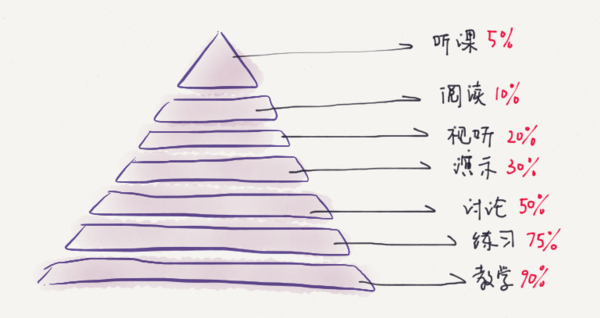 听课 5%
阅读 10%
视听 20%
演示 30%
讨论 50%
练习 75%
教学 90%